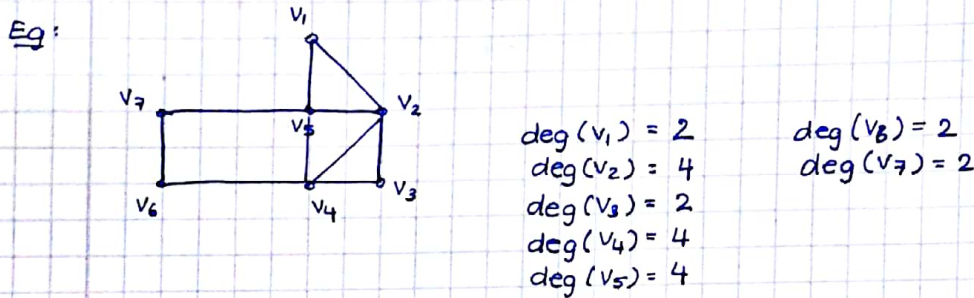 Eg:
V₁
V₇
V₂
V₅
V₆
V₄
V₃
deg(V₁) = 2
deg(V₂) = 4
deg(V₃) = 2
deg(V₄) = 4
deg(V₅) = 4
deg(V₆) = 2
deg(V₇) = 2